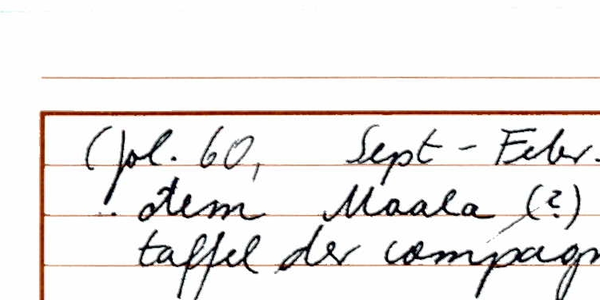 (fol. 60, Sept - Febr.
.. dem Maala (?)
taffel der compagn